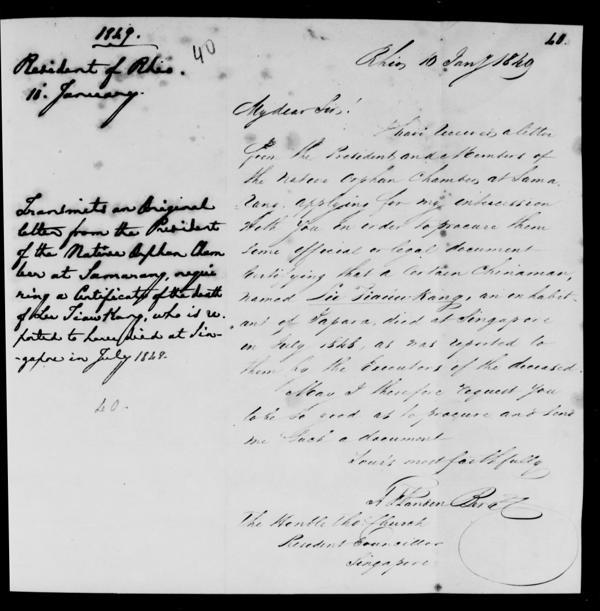 1849.
40
Resident of Rhio.
10. January.
Transmits an Original
letter from the President
of the Native Orphan Cham
ber at Samarang, requi
ring a Certificate of the death
of Liw Tiauwkang, who is re.
ported to have died at Sin-
-gapore in July 1848.
40.
40.
Rhio 10 Jany 1849
My dear Sir!
I have received a letter
from the President and Members of
the Native Orphan Chamber at Sama
rang, applying for my intercession
with you in order to procure them
some official or legal document
certifying that a certain Chinaman,
named Liw Tiauwkang, an inhabit-
ant of Japara, died at Singapore
in July 1848, as was reported to
them by the Executors of the deceased.
May I therefore request you
to be so good as to procure and send
me such a document
Yours most faithfully
The Honble Thos Church
Resident Councillor
Singapore